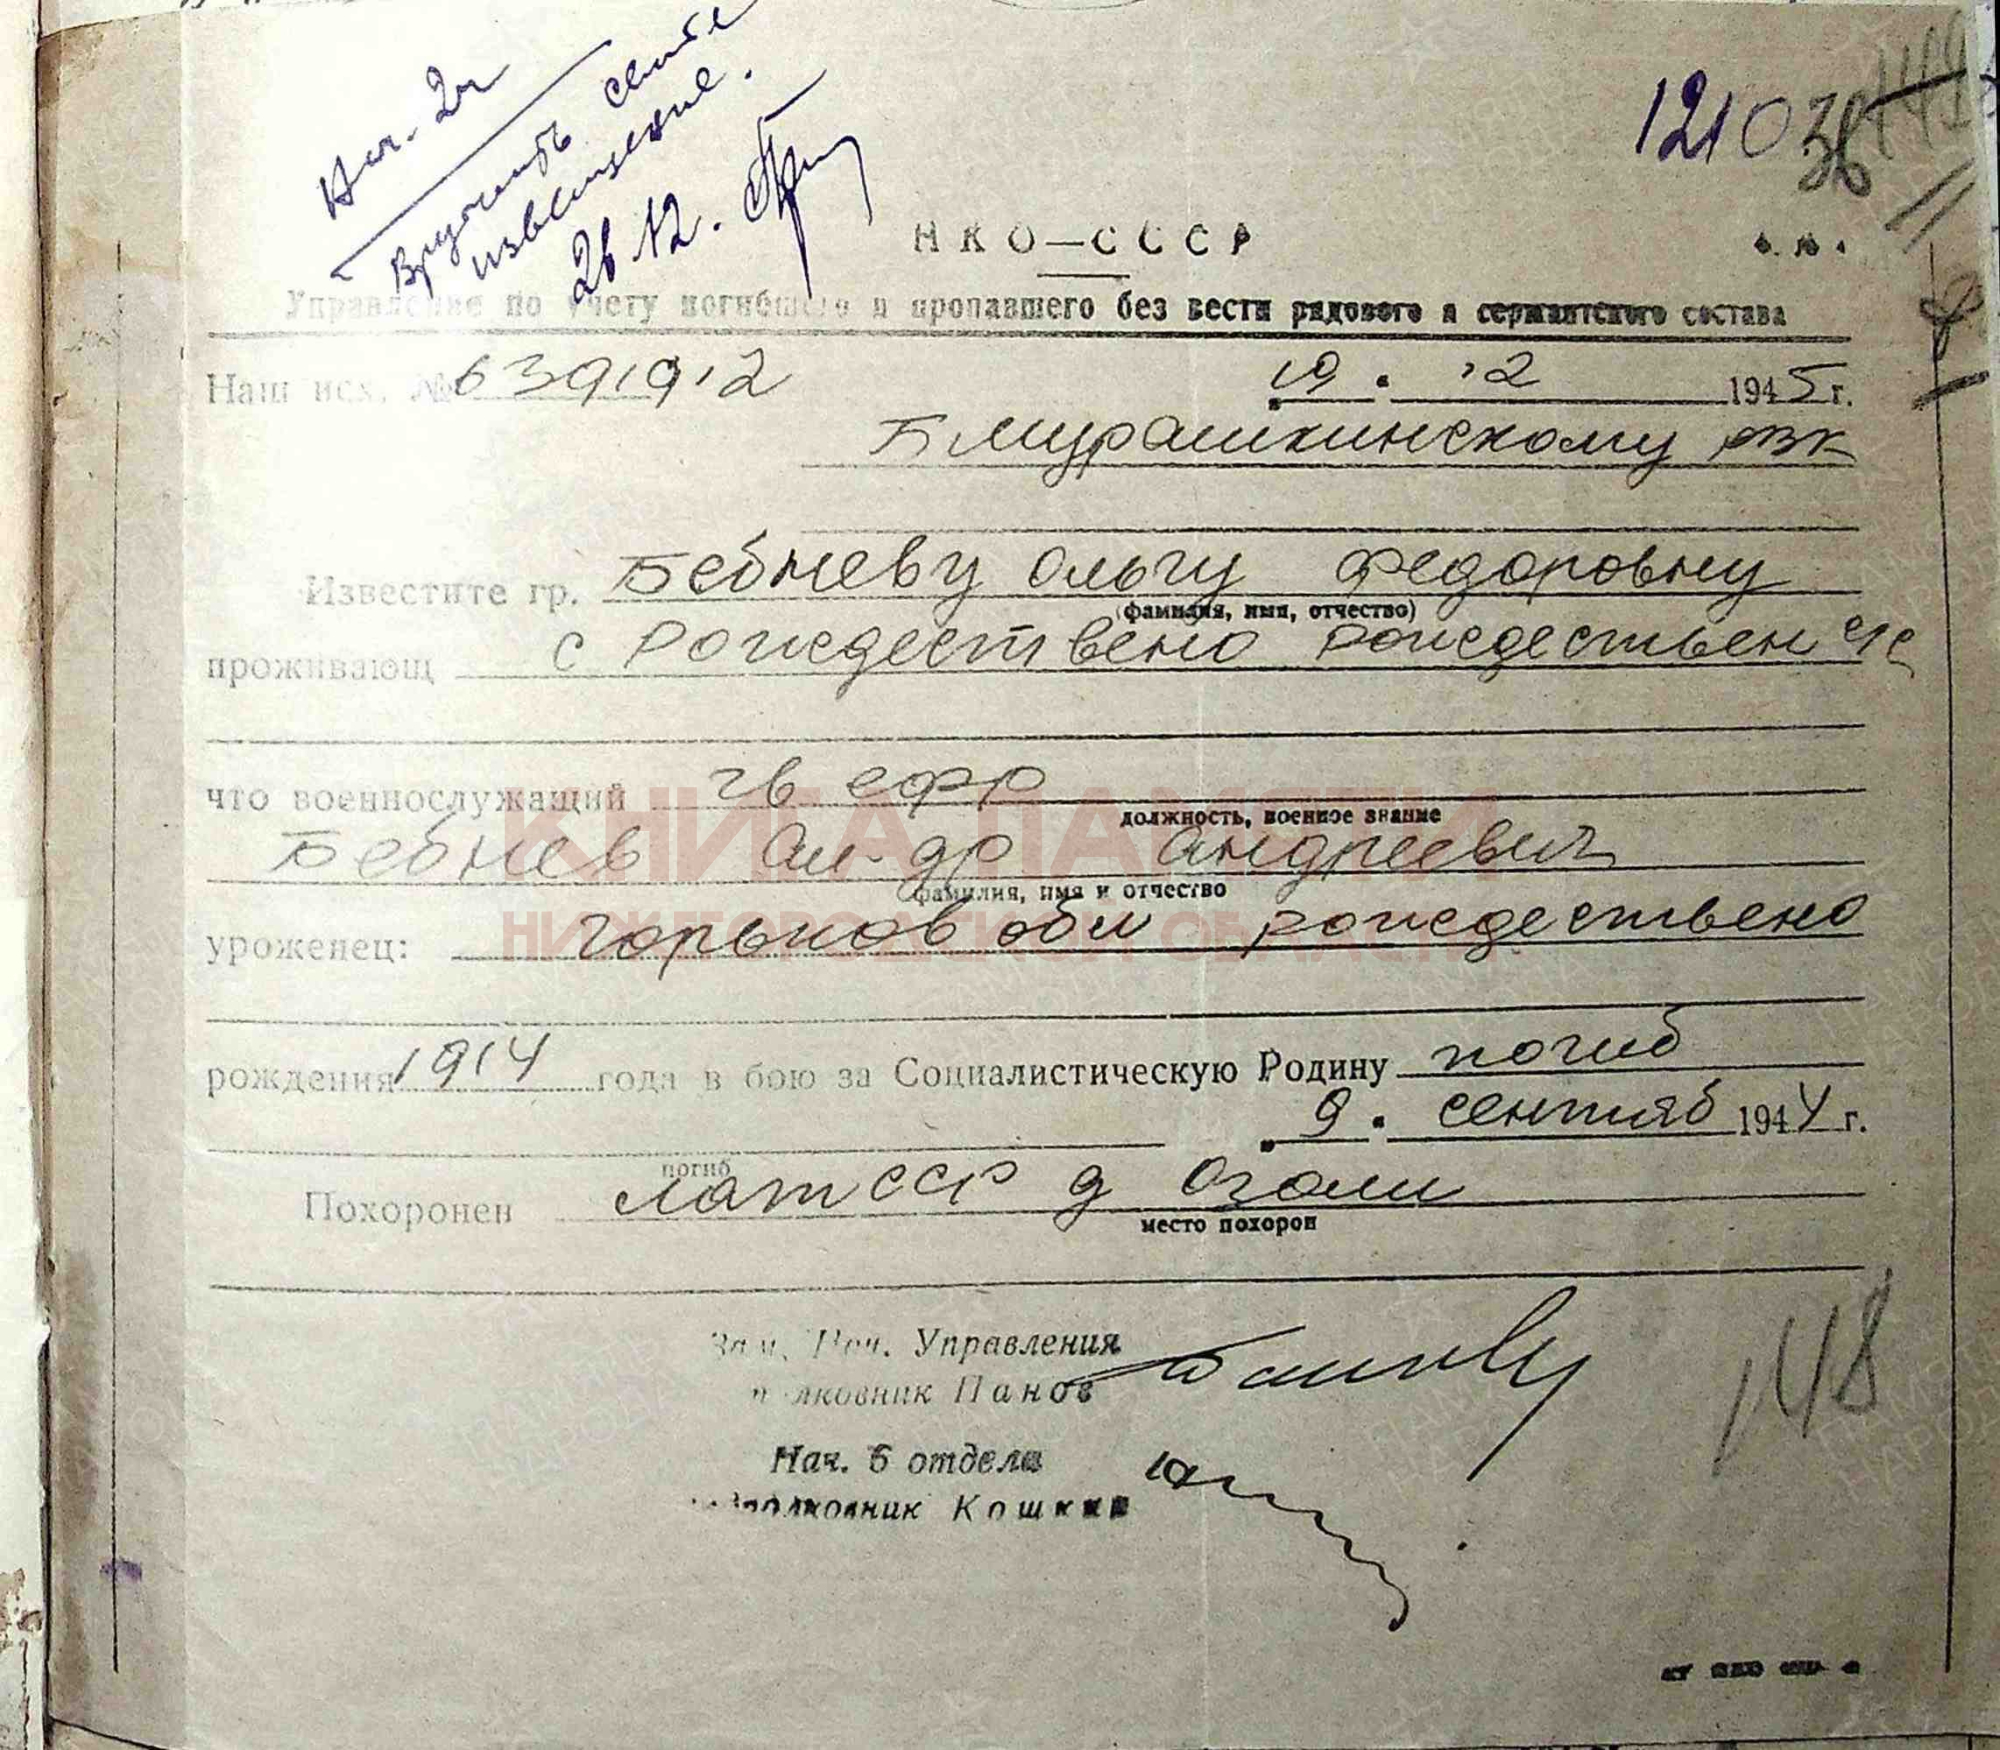 Нач. 2ч
Вручить семье
извещение.
26.12.
121036
149
НКО—СССР
Управление по учету погибшего и пропавшего без вести рядового и сержантского состава
Наш исх. № 6391912
19. 12 1945 г.
Бмурашкинскому рвк
Известите гр. Бебневу Ольгу Федоровну
(фамилия, имя, отчество)
проживающ с Рождествено Рождествен с/с
что военнослужащий гв ефр
должность, военное звание
Бебнев Ал-др Андреевич
фамилия, имя и отчество
уроженец: Горьков обл Рождествено
рождения 1914 года в бою за Социалистическую Родину погиб
9. сентяб 1944 г.
погиб
Похоронен Лат ССР д Озоли
место похорон
Зам. Нач. Управления
полковник Панов
148
Нач. 6 отдела
подполковник Кошкин
КНИГА ПАМЯТИ
НИЖЕГОРОДСКОЙ ОБЛАСТИ